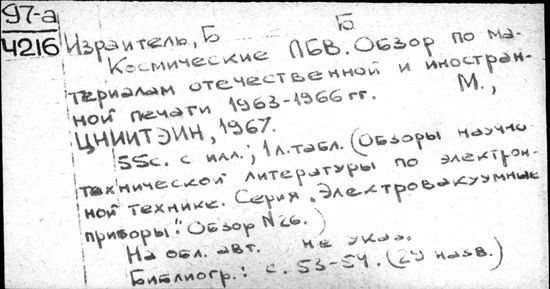 97-а
4216
Израитель, Б Б
Космические ЛБВ. Обзор по ма-
териалам отечественной и иностран-
ной печати 1963-1966 гг. М.,
ЦНИИТЭИН, 1967.
55с. с илл.; 1 л. табл. (Обзоры научно
технической литературы по электрон-
ной технике. Серия „Электровакуумные
приборы": Обзор N26.)
На обл. авт. не указ.
Библиогр.: с. 53-54. (29 назв.)